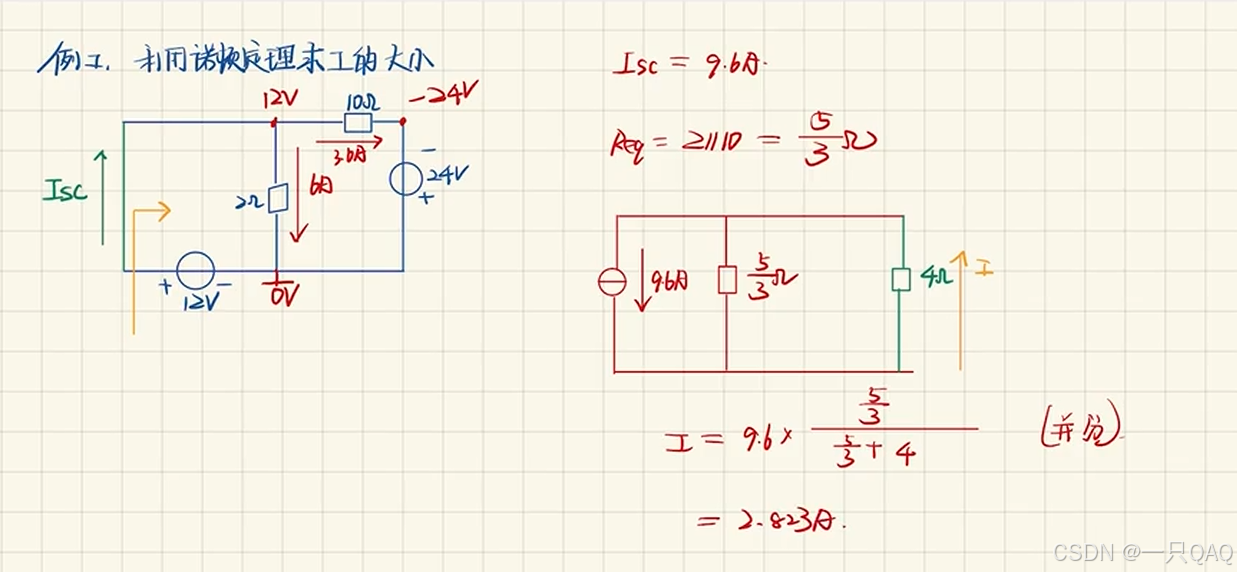 例工. 利用诺顿定理求I的大小
12V
10Ω
-24V
3.6A
Isc
2Ω
6A
-
24V
+
+
12V
-
0V
Isc = 9.6A.
Req = 2//10 = 5/3 Ω
9.6A
5/3 Ω
4Ω
I
I = 9.6 × (5/3)/(5/3 + 4) (并分).
= 2.823A.
CSDN @一只QAQ